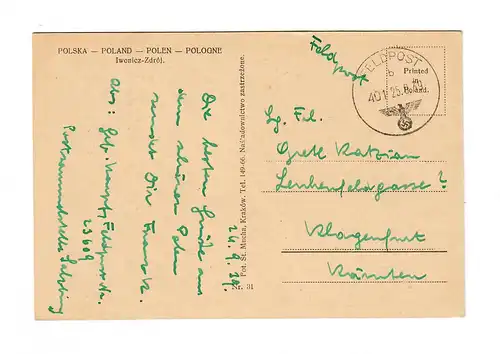 POLSKA — POLAND — POLEN — POLOGNE
Iwonicz-Zdrój.
Feldpost
FELDPOST
b
401 25.9.39
Printed
in
Poland.
24.9.39.
Die besten Grüße aus
dem schönen Polen
sendet Dir Franz.
Abs: Geb. Feldpost Nr.
23609
Postsammelstelle Salzburg
Fot. St. Mucha, Kraków. Tel. 149-66. Naśladownictwo zastrzeżone.
Nr. 31
Frl.
Grete
Lerchenfeldgasse ?
Klagenfurt
Kärnten